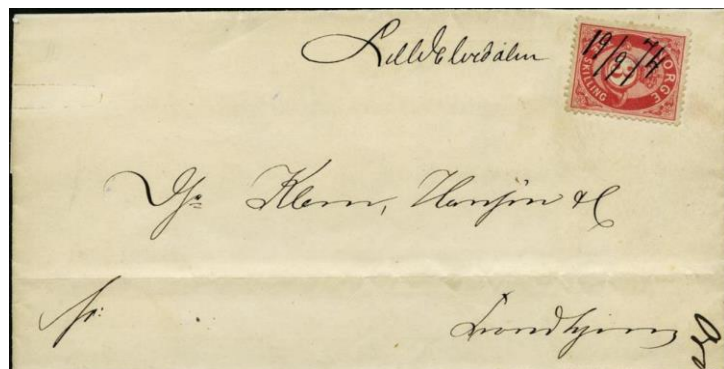 LilleElvedalen
19/9 74
NORGE
3
SKILLING
Hr. Klem, Hansen & C
fr:
Trondhjem